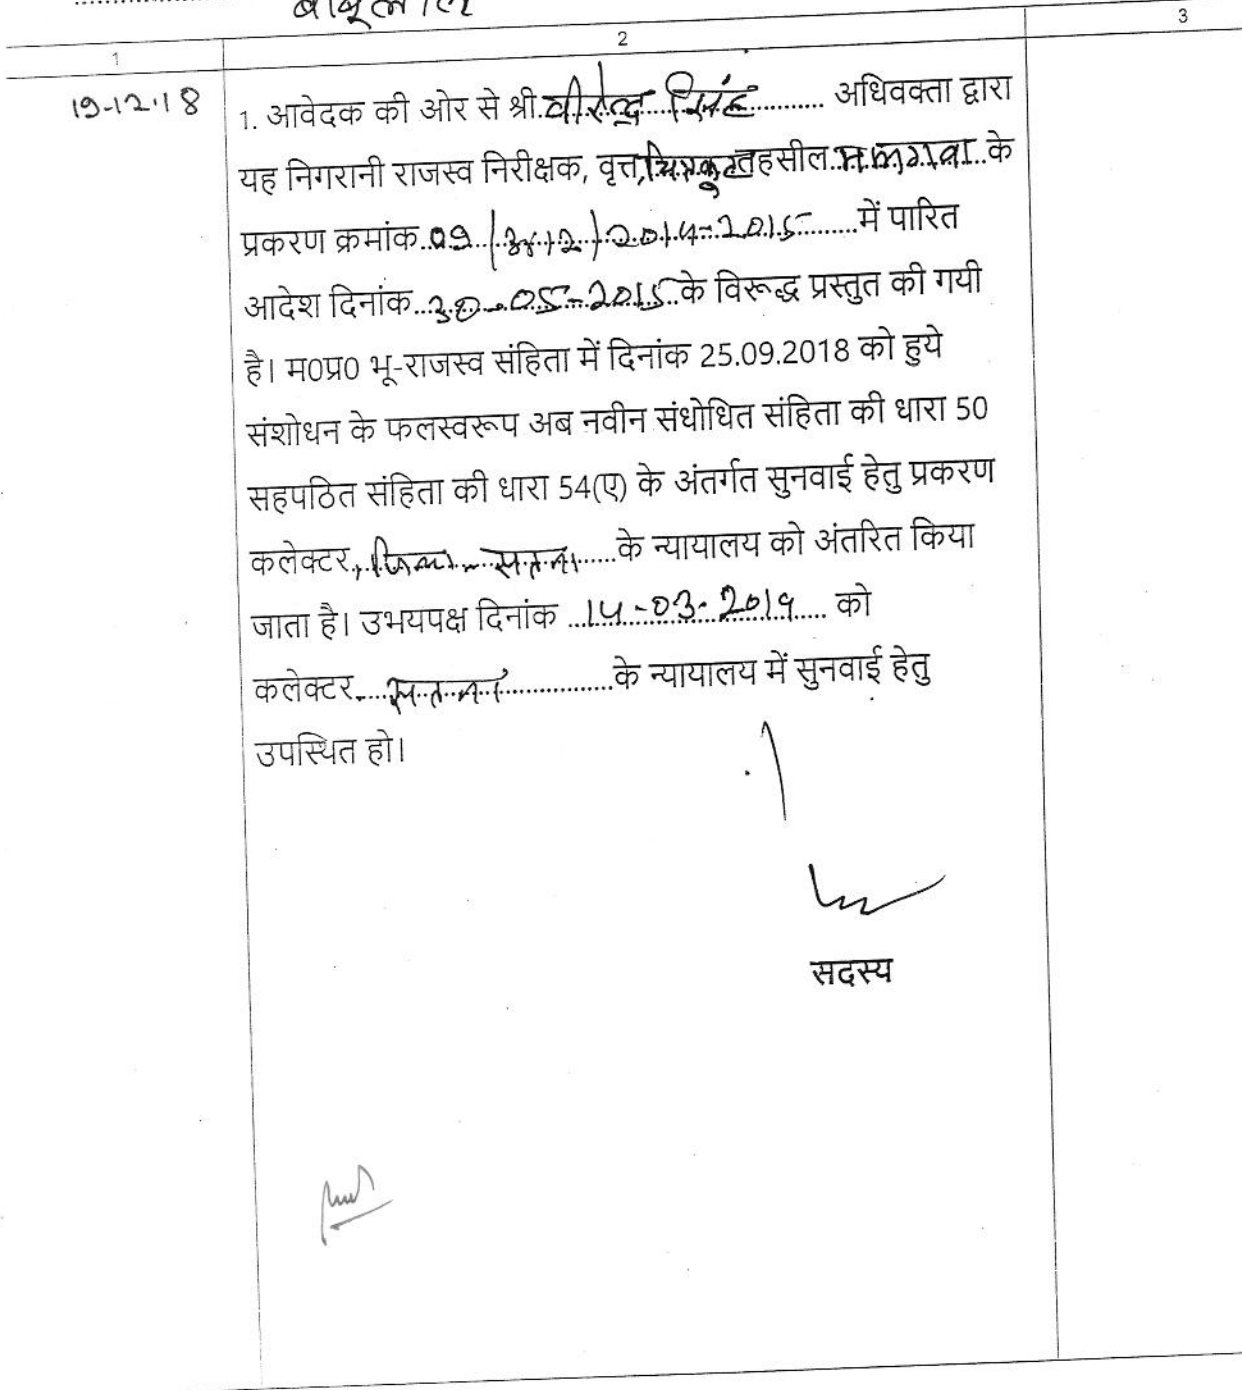 बाबूलाल
1 2 3
19-12-18
1. आवेदक की ओर से श्री वीरेन्द्र सिंह अधिवक्ता द्वारा
यह निगरानी राजस्व निरीक्षक, वृत्त, चित्रकूट तहसील मझगवां के
प्रकरण क्रमांक 09/अ-12/2014-2015 में पारित
आदेश दिनांक 30-05-2015 के विरूद्ध प्रस्तुत की गयी
है। म0प्र0 भू-राजस्व संहिता में दिनांक 25.09.2018 को हुये
संशोधन के फलस्वरूप अब नवीन संधोधित संहिता की धारा 50
सहपठित संहिता की धारा 54(ए) के अंतर्गत सुनवाई हेतु प्रकरण
कलेक्टर, जिला - सतना के न्यायालय को अंतरित किया
जाता है। उभयपक्ष दिनांक 14-03-2019 को
कलेक्टर सतना के न्यायालय में सुनवाई हेतु
उपस्थित हो।
सदस्य